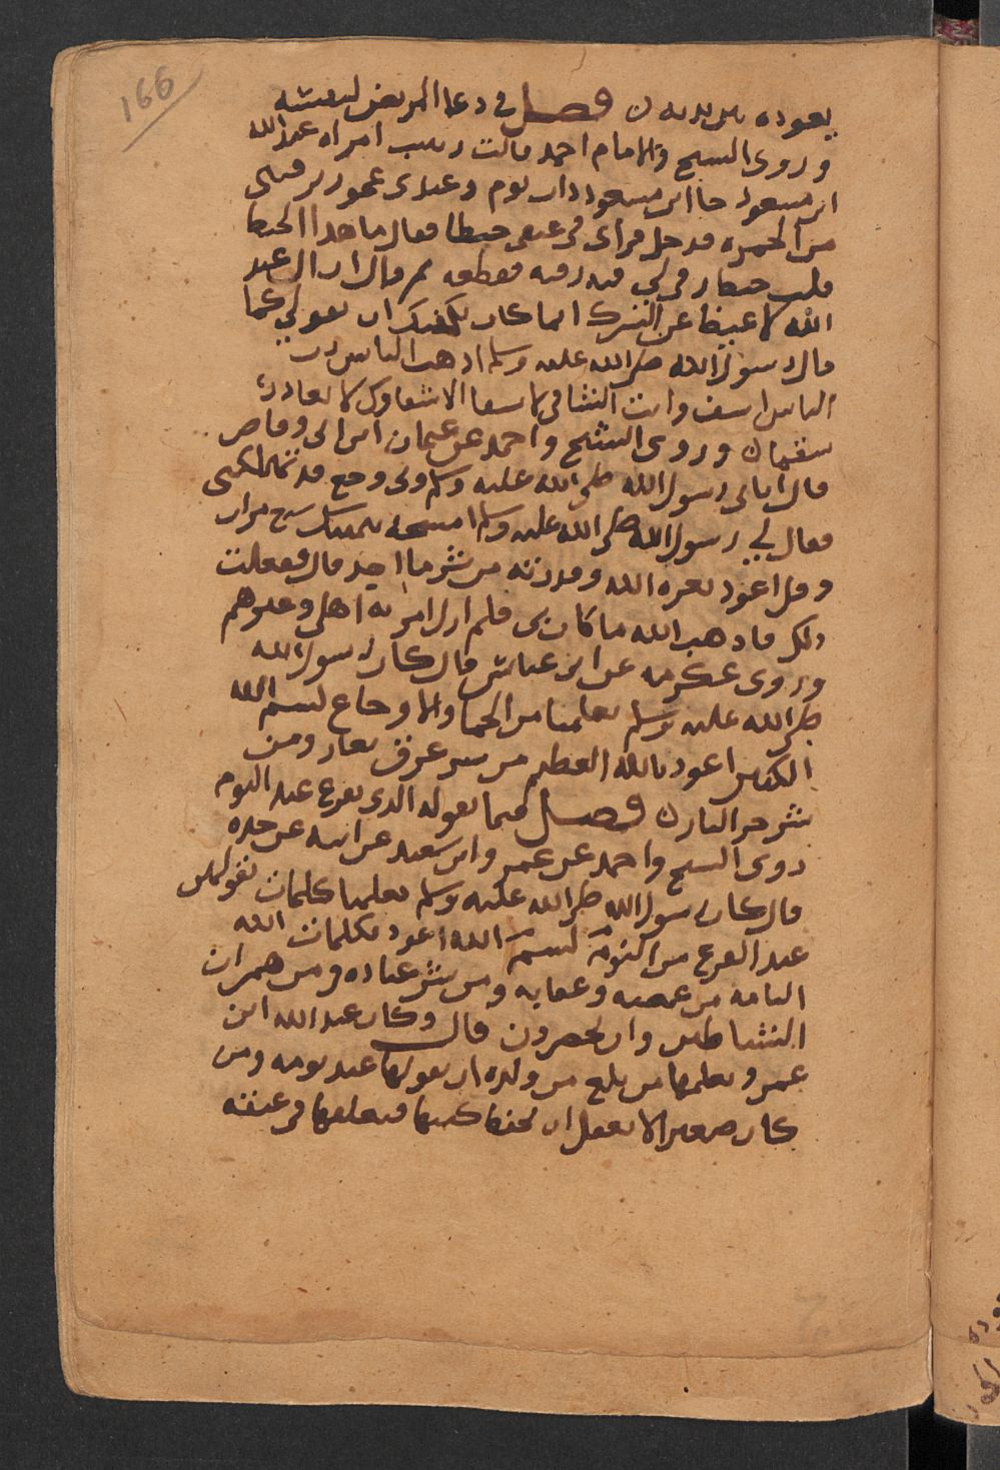 166
يعوده بين يديه ن فصل في دعا المريض لنفسه
وروى الشيخ والامام احمد قالت زينب امراه عبد الله
ابن مسعود جا ابن مسعود دات يوم وعندي عجوز ترقيني
من الحمره فدخل فراى في عنقي خيطا فقال ما هدا الخيط
قلت خيط رقي لي فيه رقيه فقطعه ثم قال ان ال عبد
الله لاغنيا عن الشرك انما كان يكفيك ان تقولي كما
قال رسول الله صلى الله عليه وسلم ادهب الباس رب
الناس اشف وانت الشافي لا شفا الا شفاوك لا يغادر
سقما ن وروى الشيخ واحمد عن عثمان ابن ابي وقاص
قال اتاني رسول الله صلى الله عليه وسلم وبي وجع قد يهلكني
فقال لي رسول الله صلى الله عليه وسلم امسحه بيمينك سبع مرات
وقل اعود بعزه الله وقدرته من شر ما اجد قال ففعلت
دلك فادهب الله ما كان بي فلم ازل امر به اهلي وغيرهم
وروى عكرمه عن ابن عباس قال كان رسول الله
صلى الله عليه وسلم يعلمنا من الحما والاوجاع لبسم الله
الكبير اعود بالله العظيم من شر عرق نعار ومن
شر حر النار ن فصل فيما يقوله الدي يفزع عند النوم
روى الشيخ واحمد عن عمر وابن سعيد عن ابيه عن جده
قال كان رسول الله صلى الله عليه وسلم يعلمنا كلمات نقولهن
عند الفزع من النوم بسم الله اعود بكلمات الله
التامه من غضبه وعقابه ومن شر عباده ومن همزات
الشياطين وان يحضرون قال وكان عبد الله ابن
عمرو يعلمها من بلغ من ولده ان يقولها عند نومه ومن
كان صغيرا لا يعقل ان يحفظها كتبها فيعلقها في عنقه